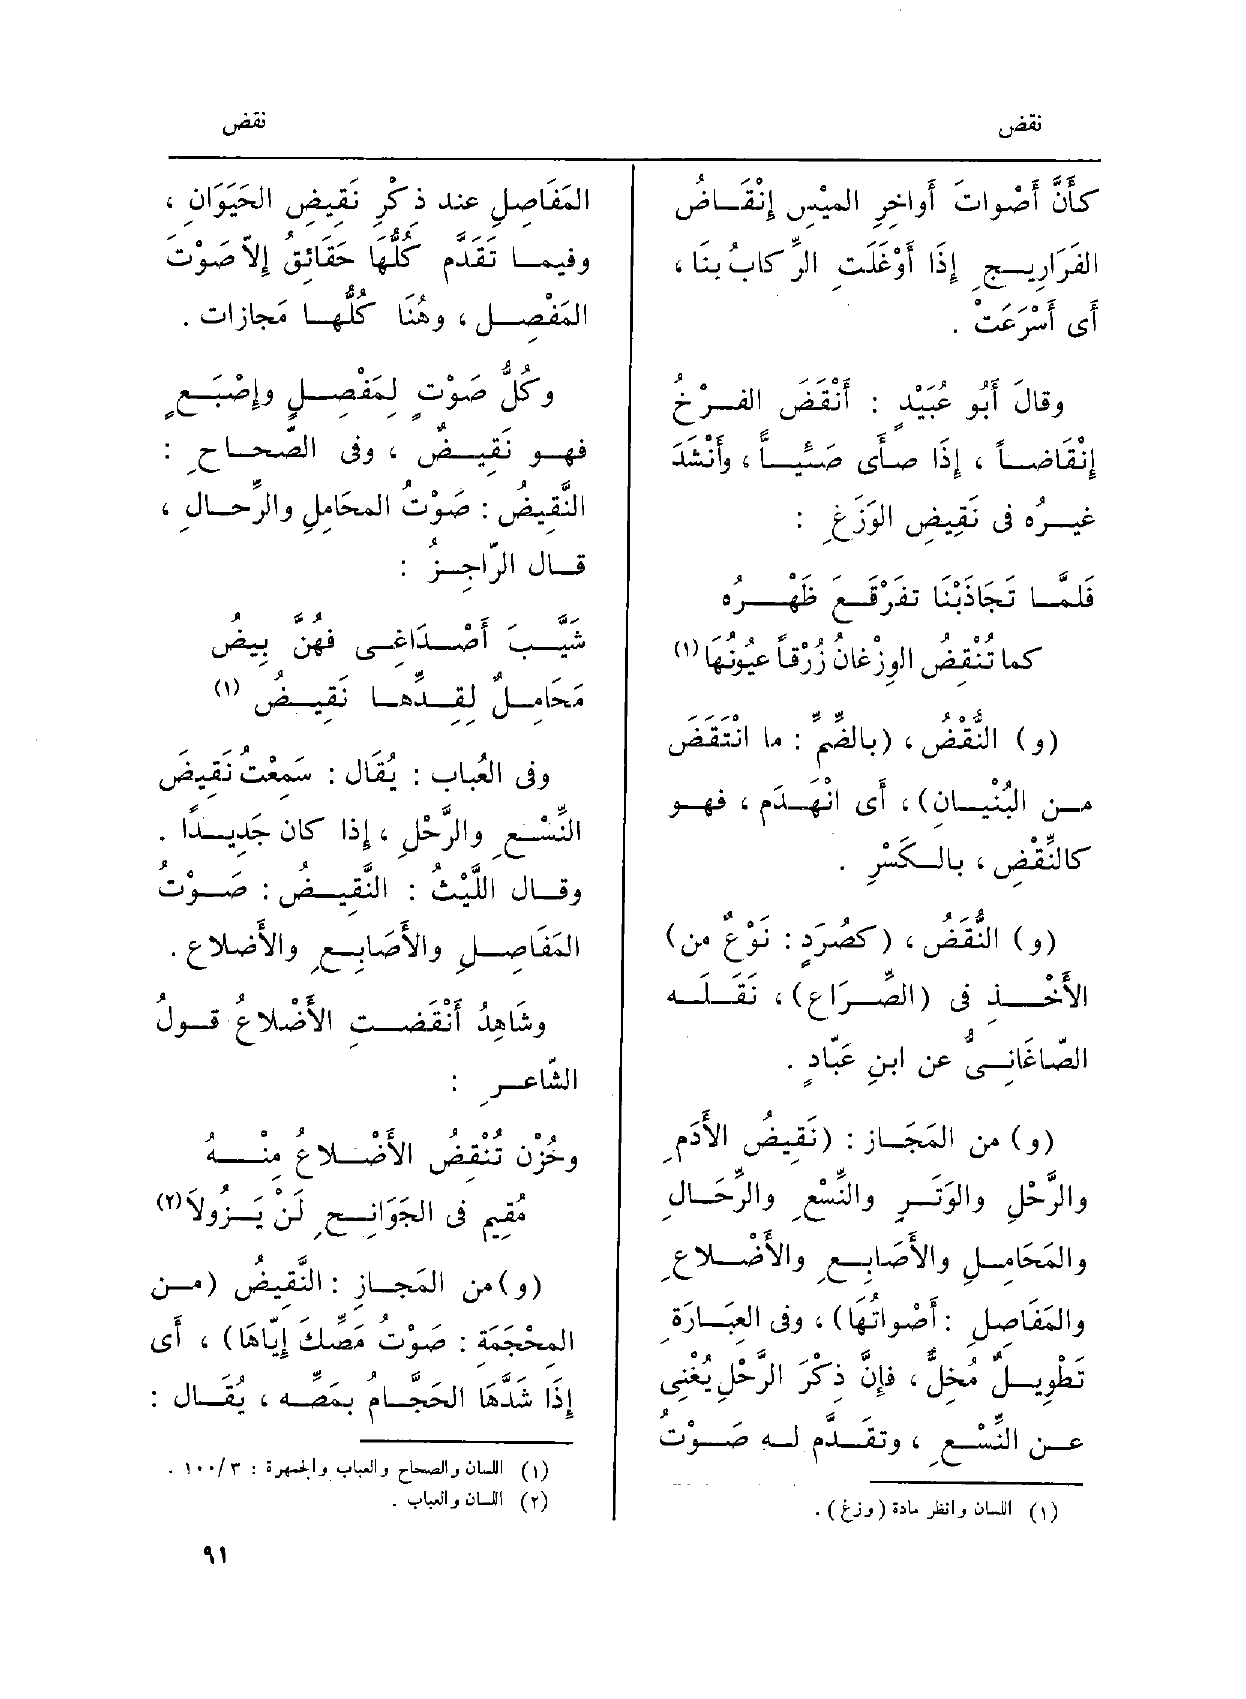 نقض
نقض
كأَنَّ أَصْواتَ أَواخِرِ المَيْسِ إِنْقَاضُ
الفَرَارِيجِ إِذَا أَوْغَلَتِ الرِّكابُ بنَا ،
أَى أَسْرَعَتْ .
وقالَ أَبُو عُبَيْدٍ : أَنْقَضَ الفَرْخُ
إِنْقاضاً ، إِذا صأَى صَئِيّاً ، وأَنْشَدَ
غيرُه فى نَقِيضِ الوَزَغِ :
فَلمَّا تَجَاذَبْنَا تفَرْقَعَ ظَهْرُه
كما تُنْقِضُ الوِزْغانُ زُرْقاً عيُونُهَا (١)
(و) النُّقْضُ ، (بالضَّمِّ : ما انْتَقَضَ
من البُنْيانِ) ، أَى انْهَدَم ، فهو
كالنِّقْضِ ، بالكَسْرِ .
(و) النُّقَضُ ، (كصُرَدٍ : نَوْعٌ من)
الأَخْذِ فى (الصِّرَاعِ) ، نَقَلَه
الصّاغَانِىُّ عن ابنِ عَبّادٍ .
(و) من المَجَاز : (نَقِيضُ الأَدَمِ
والرَّحْلِ والوَتَرِ والنِّسْعِ والرِّحَالِ
والمَحَامِلِ والأَصَابِعِ والأَضْلاعِ
والمَفَاصِلِ : أَصْواتُهَا) ، وفى العِبَارَةِ
تَطْوِيلٌ مُخِلٌّ ، فإِنَّ ذِكْرَ الرَّحْلِ يُغْنِى
عن النِّسْعِ ، وتقَدَّم له صَوْتُ
(١) اللسان وانظر مادة (وزغ) .
المَفَاصِلِ عند ذِكْرِ نَقِيضِ الحَيَوَانِ ،
وفيما تَقَدَّم كُلُّهَا حَقَائقُ إِلاّ صَوْتَ
المَفْصِلِ ، وهُنَا كُلُّها مَجازات .
وكُلُّ صَوْتٍ لِمَفْصِلٍ وإِصْبَعٍ
فهو نَقِيضٌ ، وفى الصّحاحِ :
النَّقِيضُ : صَوْتُ المحَامِلِ والرِّحالِ ،
قال الرّاجِزُ :
شَيَّبَ أَصْدَاغِى فهُنَّ بِيضُ
مَحَامِلٌ لِقِدِّها نَقِيضُ (١)
وفى العُباب : يُقَال : سَمِعْتُ نَقِيضَ
النِّسْعِ والرَّحْلِ ، إِذا كان جَدِيدًا .
وقال اللَّيْثُ : النَّقِيضُ : صَوْتُ
المَفَاصِلِ والأَصَابِعِ والأَضْلاعِ .
وشَاهِدُ أَنْقَضتِ الأَضْلاعُ قولُ
الشّاعرِ :
وحُزْن تُنْقِضُ الأَضْلاعُ مِنْهُ
مُقِيم فى الجَوَانِحِ لَنْ يَزُولاَ (٢)
(و) من المَجازِ : النَّقِيضُ (من
المِحْجَمَةِ : صَوْتُ مَصِّكَ إِيّاهَا) ، أَى
إِذَا شَدَّهَا الحَجّامُ بمَصِّه ، يُقَال :
(١) اللسان والصحاح والعباب والجمهرة : ٣ /١٠٠ .
(٢) اللسان والعباب .
٩١